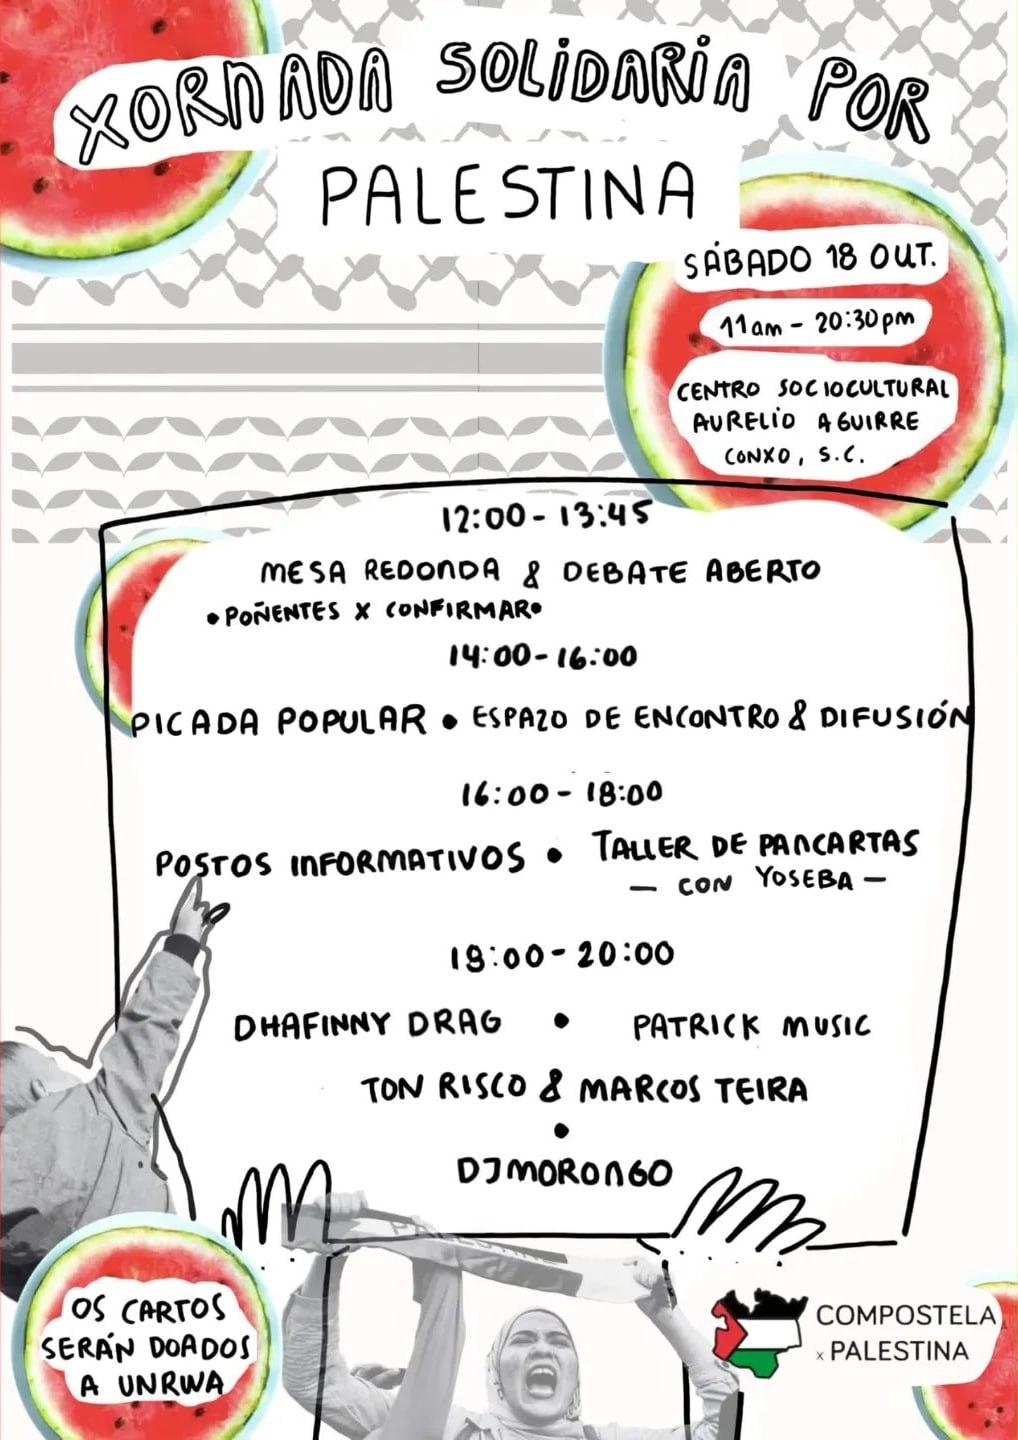 XORNADA SOLIDARIA POR
PALESTINA
SÁBADO 18 OUT.
11am - 20:30pm
CENTRO SOCIOCULTURAL
AURELIO AGUIRRE
CONXO, S.C.
12:00 - 13:45
MESA REDONDA & DEBATE ABERTO
• POÑENTES X CONFIRMAR•
14:00 - 16:00
PICADA POPULAR • ESPAZO DE ENCONTRO & DIFUSIÓN
16:00 - 18:00
POSTOS INFORMATIVOS • TALLER DE PANCARTAS
— CON YOSEBA —
18:00 - 20:00
DHAFINNY DRAG • PATRICK MUSIC
TON RISCO & MARCOS TEIRA
•
DJMORONGO
PALESTINE
OS CARTOS
SERÁN DOADOS
A UNRWA
COMPOSTELA
x PALESTINA